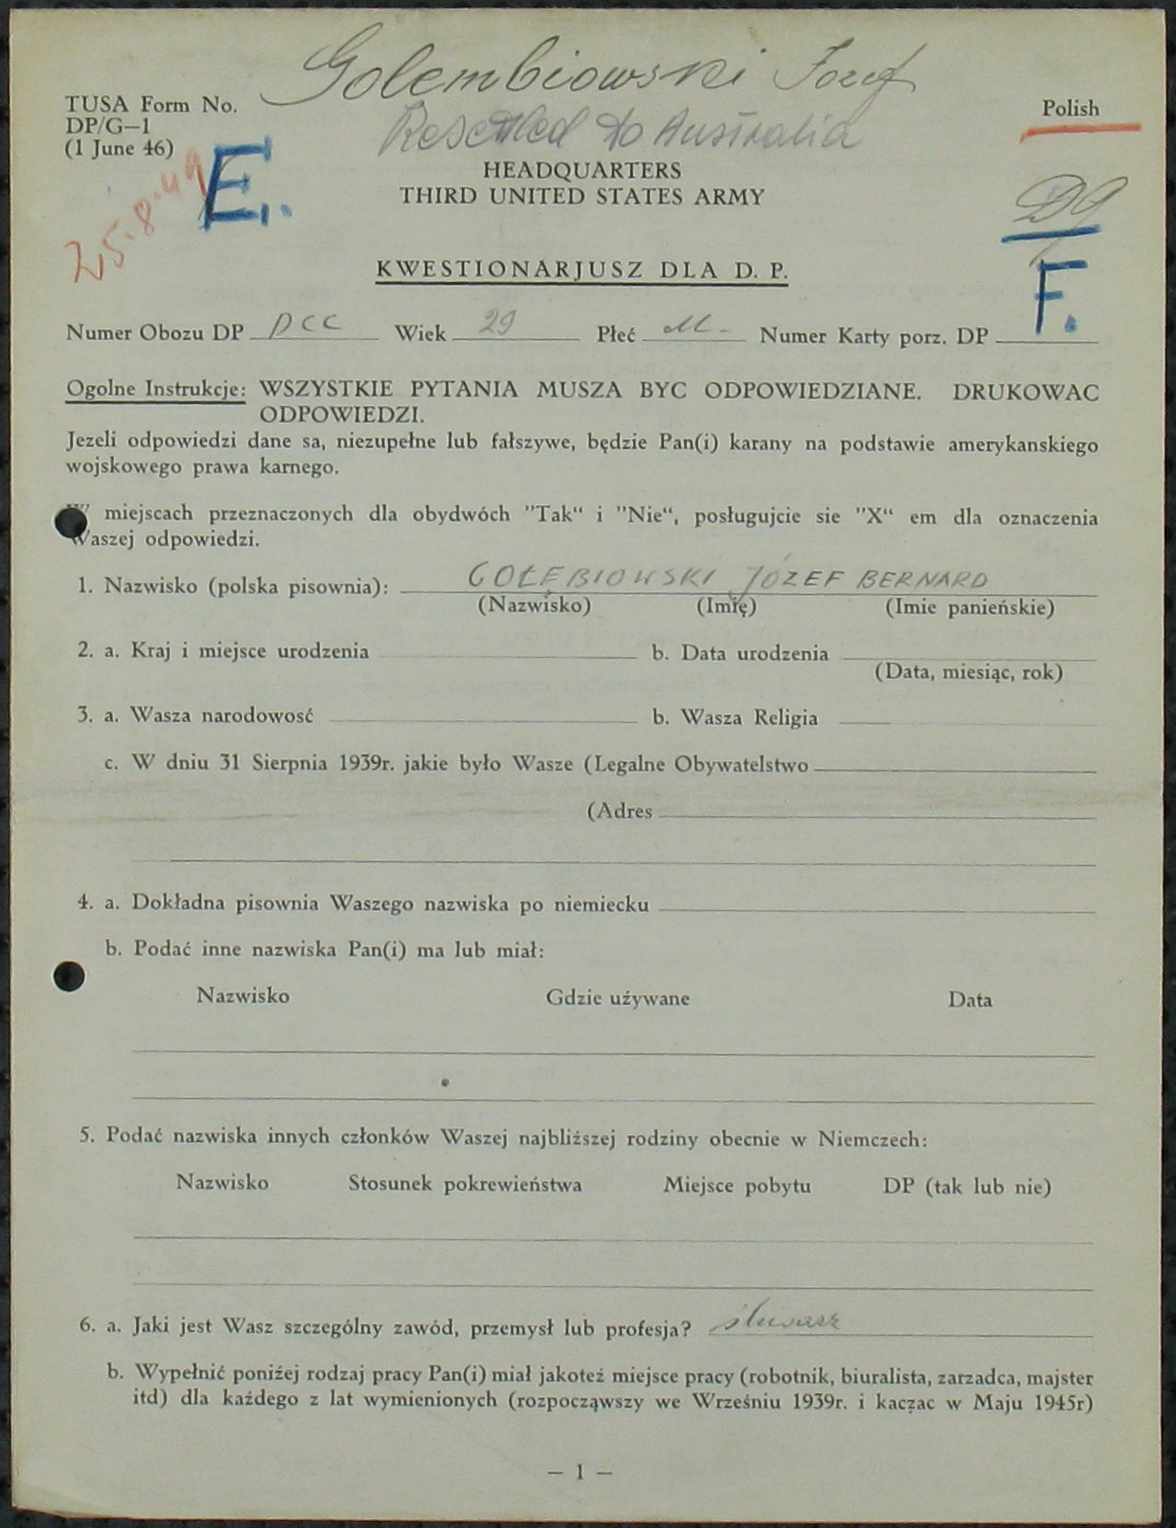 Golembiowski Jozef
TUSA Form No.
DP/G—1
(1 June 46)
Polish
Resettled to Australia
25.8.49
E.
HEADQUARTERS
THIRD UNITED STATES ARMY
F.
KWESTIONARJUSZ DLA D. P.
Numer Obozu DP DCC Wiek 29 Płeć M. Numer Karty porz. DP
Ogolne Instrukcje: WSZYSTKIE PYTANIA MUSZA BYC ODPOWIEDZIANE. DRUKOWAC
ODPOWIEDZI.
Jezeli odpowiedzi dane sa, niezupełne lub fałszywe, będzie Pan(i) karany na podstawie amerykanskiego
wojskowego prawa karnego.
W miejscach przeznaczonych dla obydwóch "Tak“ i "Nie“, posługujcie sie "X“ em dla oznaczenia
Waszej odpowiedzi.
1. Nazwisko (polska pisownia): GOŁĘBIOWSKI JÓZEF BERNARD
(Nazwisko) (Imię) (Imie panieńskie)
2. a. Kraj i miejsce urodzenia b. Data urodzenia
(Data, miesiąc, rok)
3. a. Wasza narodowosć b. Wasza Religia
c. W dniu 31 Sierpnia 1939r. jakie było Wasze (Legalne Obywatelstwo
(Adres
4. a. Dokładna pisownia Waszego nazwiska po niemiecku
b. Podać inne nazwiska Pan(i) ma lub miał:
Nazwisko Gdzie używane Data
5. Podać nazwiska innych członków Waszej najbliższej rodziny obecnie w Niemczech:
Nazwisko Stosunek pokrewieństwa Miejsce pobytu DP (tak lub nie)
6. a. Jaki jest Wasz szczególny zawód, przemysł lub profesja? ślusarz
b. Wypełnić poniżej rodzaj pracy Pan(i) miał jakoteż miejsce pracy (robotnik, biuralista, zarzadca, majster
itd) dla każdego z lat wymienionych (rozpocząwszy we Wrześniu 1939r. i kaczac w Maju 1945r)
— 1 —